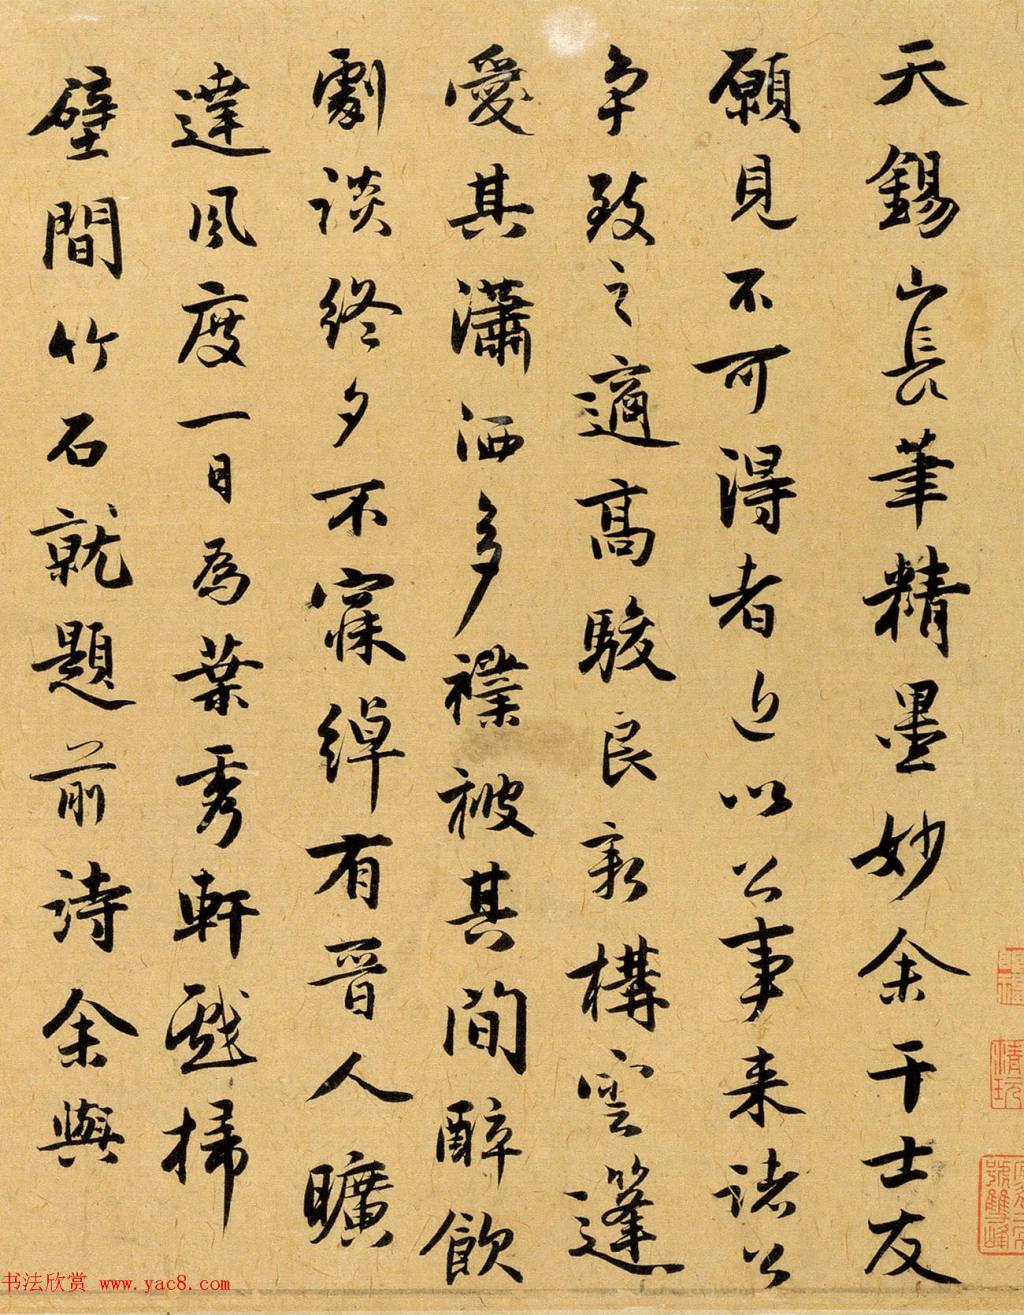 天錫長筆精墨妙余干士友
願見不可得者近以公事来諸公
争致之適高駿良新構雲篷
愛其瀟洒多襆被其间醉飲
劇談終夕不寐綽有晉人曠
達風度一日為葉秀軒戲掃
壁間竹石就題前詩余與
清玩
書法欣賞 www.yac8.com